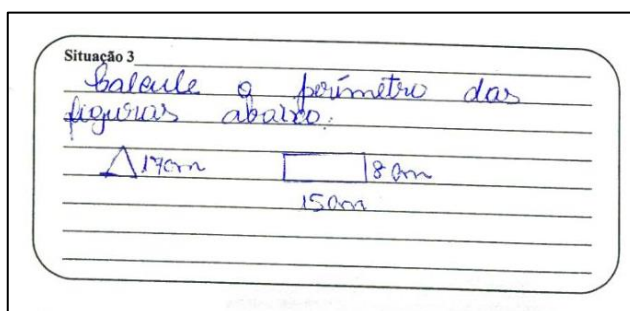 Situação 3
Calcule o perímetro das
figuras abaixo:
17cm 8cm
15cm